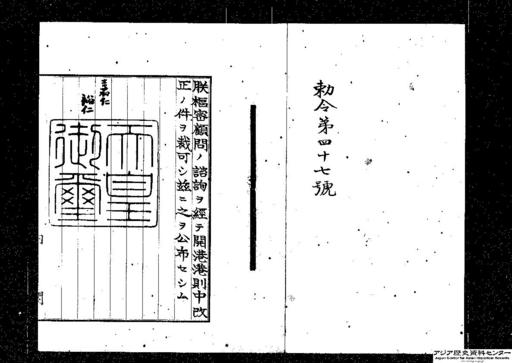 勅令第四十七號
朕樞密顧問ノ諮詢ヲ經テ開港港則中改
正ノ件ヲ裁可シ茲ニ之ヲ公布セシム
裕仁
天皇御璽
内閣
アジア歴史資料センター
Japan Center for Asian Historical Records